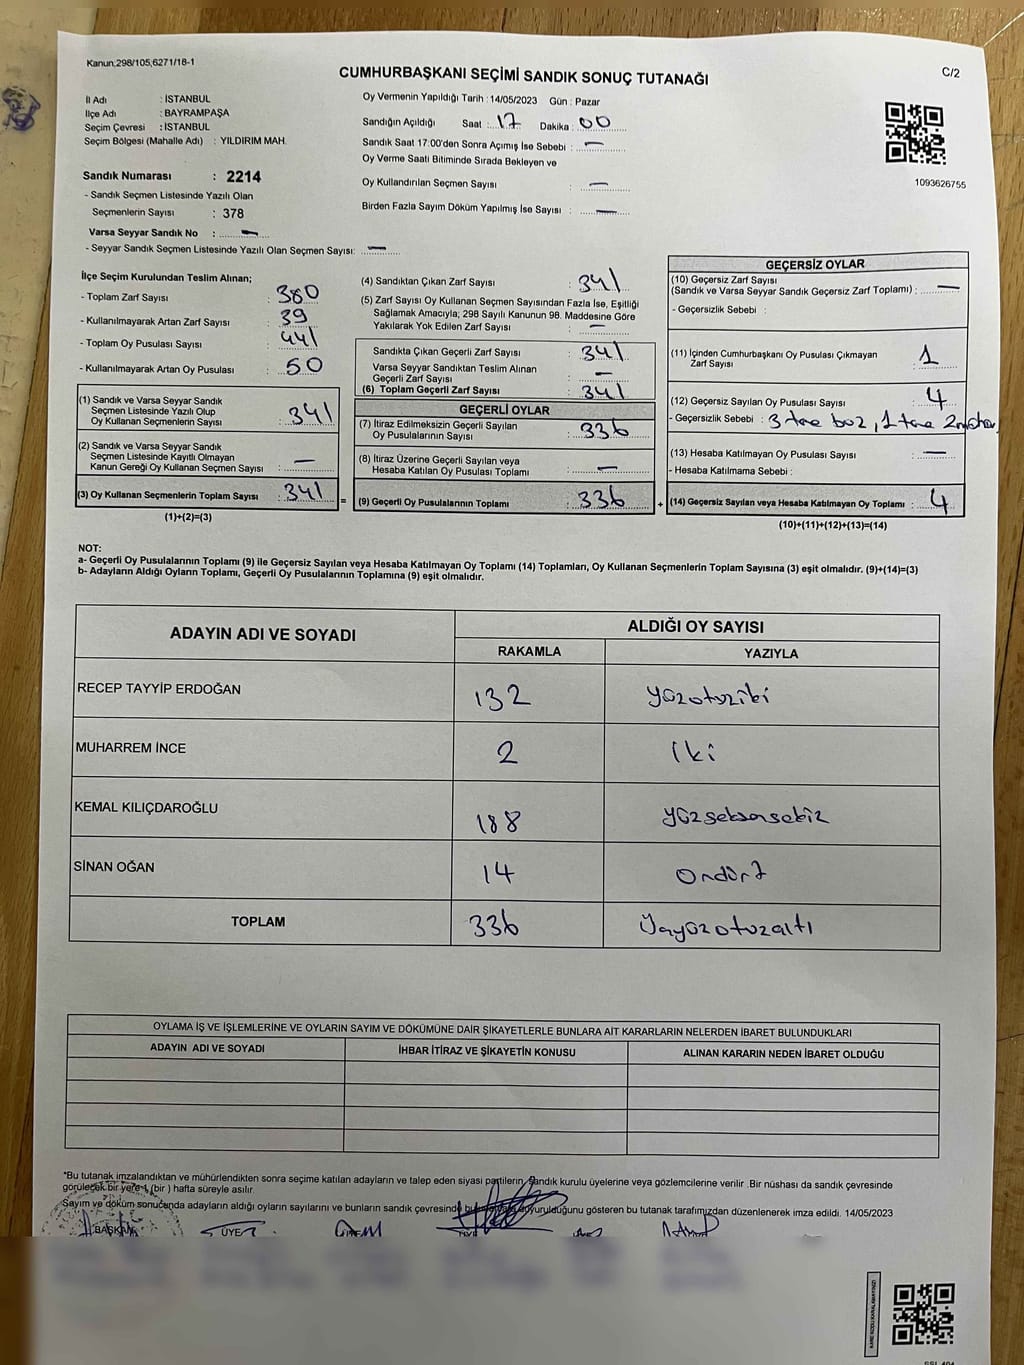 Kanun;298/105,6271/18-1
CUMHURBAŞKANI SEÇİMİ SANDIK SONUÇ TUTANAĞI
C/2
İl Adı : İSTANBUL
İlçe Adı : BAYRAMPAŞA
Seçim Çevresi : İSTANBUL
Seçim Bölgesi (Mahalle Adı) : YILDIRIM MAH.
Sandık Numarası : 2214
- Sandık Seçmen Listesinde Yazılı Olan
Seçmenlerin Sayısı : 378
Varsa Seyyar Sandık No : —
- Seyyar Sandık Seçmen Listesinde Yazılı Olan Seçmen Sayısı: —
Oy Vermenin Yapıldığı Tarih : 14/05/2023 Gün : Pazar
Sandığın Açıldığı Saat : 17 Dakika : 00
Sandık Saat 17:00'den Sonra Açımış İse Sebebi : —
Oy Verme Saati Bitiminde Sırada Bekleyen ve
Oy Kullandırılan Seçmen Sayısı : —
Birden Fazla Sayım Döküm Yapılmış İse Sayısı : —
1093626755
İlçe Seçim Kurulundan Teslim Alınan;
- Toplam Zarf Sayısı : 380
- Kullanılmayarak Artan Zarf Sayısı : 39
- Toplam Oy Pusulası Sayısı : 441
- Kullanılmayarak Artan Oy Pusulası : 50
(1) Sandık ve Varsa Seyyar Sandık
Seçmen Listesinde Yazılı Olup
Oy Kullanan Seçmenlerin Sayısı : 341
(2) Sandık ve Varsa Seyyar Sandık
Seçmen Listesinde Kayıtlı Olmayan
Kanun Gereği Oy Kullanan Seçmen Sayısı : —
(3) Oy Kullanan Seçmenlerin Toplam Sayısı : 341
(1)+(2)=(3)
(4) Sandıktan Çıkan Zarf Sayısı : 341
(5) Zarf Sayısı Oy Kullanan Seçmen Sayısından Fazla İse, Eşitliği
Sağlamak Amacıyla; 298 Sayılı Kanunun 98. Maddesine Göre
Yakılarak Yok Edilen Zarf Sayısı : —
Sandıkta Çıkan Geçerli Zarf Sayısı : 341
Varsa Seyyar Sandıktan Teslim Alınan
Geçerli Zarf Sayısı : —
(6) Toplam Geçerli Zarf Sayısı : 341
GEÇERLİ OYLAR
(7) İtiraz Edilmeksizin Geçerli Sayılan
Oy Pusulalarının Sayısı : 336
(8) İtiraz Üzerine Geçerli Sayılan veya
Hesaba Katılan Oy Pusulası Toplamı : —
= (9) Geçerli Oy Pusulalarının Toplamı : 336 +
GEÇERSİZ OYLAR
(10) Geçersiz Zarf Sayısı
(Sandık ve Varsa Seyyar Sandık Geçersiz Zarf Toplamı) : —
- Geçersizlik Sebebi :
(11) İçinden Cumhurbaşkanı Oy Pusulası Çıkmayan
Zarf Sayısı : 1
(12) Geçersiz Sayılan Oy Pusulası Sayısı : 4
- Geçersizlik Sebebi : 3 tane boz, 1 tane
(13) Hesaba Katılmayan Oy Pusulası Sayısı : —
- Hesaba Katılmama Sebebi :
(14) Geçersiz Sayılan veya Hesaba Katılmayan Oy Toplamı : 4
(10)+(11)+(12)+(13)=(14)
NOT:
a- Geçerli Oy Pusulalarının Toplamı (9) ile Geçersiz Sayılan veya Hesaba Katılmayan Oy Toplamı (14) Toplamları, Oy Kullanan Seçmenlerin Toplam Sayısına (3) eşit olmalıdır. (9)+(14)=(3)
b- Adayların Aldığı Oyların Toplamı, Geçerli Oy Pusulalarının Toplamına (9) eşit olmalıdır.
ADAYIN ADI VE SOYADI ALDIĞI OY SAYISI
RAKAMLA YAZIYLA
RECEP TAYYİP ERDOĞAN 132 yüzotuziki
MUHARREM İNCE 2 iki
KEMAL KILIÇDAROĞLU 188 yüzseksensekiz
SİNAN OĞAN 14 ondört
TOPLAM 336 Üçyüzotuzaltı
OYLAMA İŞ VE İŞLEMLERİNE VE OYLARIN SAYIM VE DÖKÜMÜNE DAİR ŞİKAYETLERLE BUNLARA AİT KARARLARIN NELERDEN İBARET BULUNDUKLARI
ADAYIN ADI VE SOYADI İHBAR İTİRAZ VE ŞİKAYETİN KONUSU ALINAN KARARIN NEDEN İBARET OLDUĞU
*Bu tutanak imzalandıktan ve mühürlendikten sonra seçime katılan adayların ve talep eden siyasi partilerin, sandık kurulu üyelerine veya gözlemcilerine verilir .Bir nüshası da sandık çevresinde
görülecek bir yere 1 (bir ) hafta süreyle asılır.
Sayım ve döküm sonucunda adayların aldığı oyların sayılarını ve bunların sandık çevresinde duyurulduğunu gösteren bu tutanak tarafımızdan düzenlenerek imza edildi. 14/05/2023
BAŞKAN ÜYE ÜYE